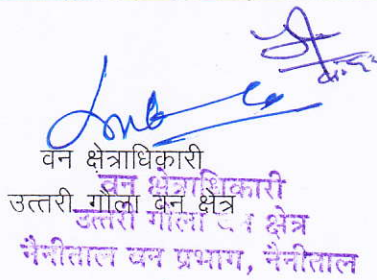 वन क्षेत्राधिकारी
उत्तरी गौला वन क्षेत्र
वन क्षेत्राधिकारी
उत्तरी गौला वन क्षेत्र
नैनीताल वन प्रभाग, नैनीताल